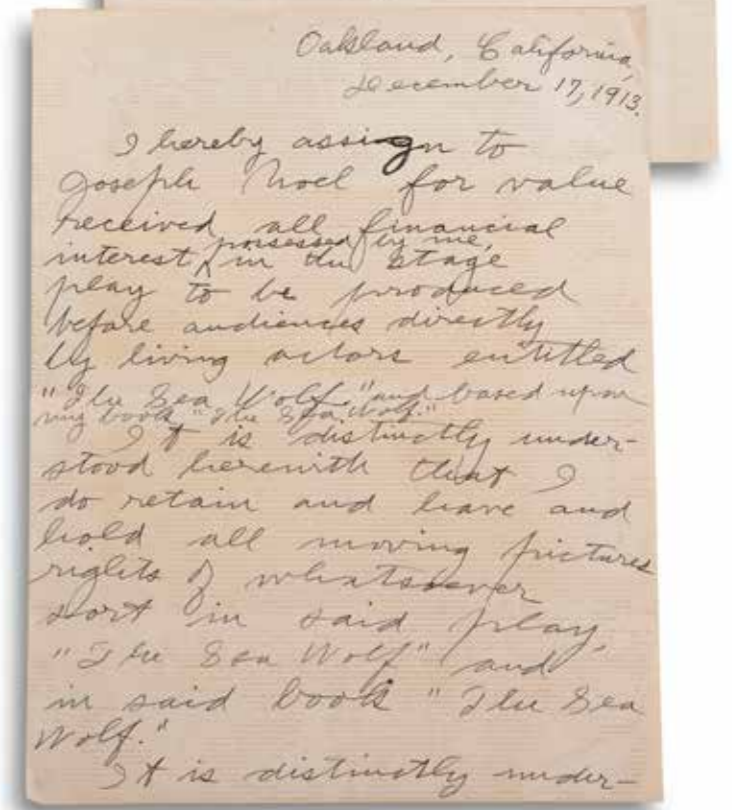 Oakland, California,
December 17, 1913.
I hereby assign to
Joseph Noel for value
received all financial
possessed by me,
interest ^ in the stage
play to be produced
before audiences directly
by living actors entitled
"The Sea Wolf" and based upon
my book "The Sea Wolf."
It is distinctly under-
stood herewith that I
do retain and have and
hold all moving pictures
rights of whatsoever
sort in said play,
"The Sea Wolf" and
in said book "The Sea
Wolf."
It is distinctly under-